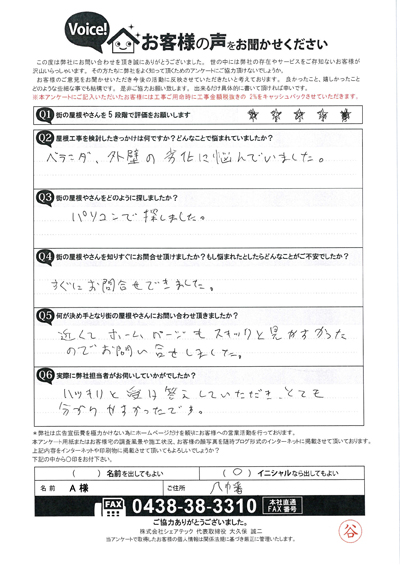 Voice!
お客様の声をお聞かせください
この度は弊社にお問い合わせを頂き誠にありがとうございました。世の中には弊社の存在やサービスをご存知ないお客様が
沢山いらっしゃいます。その方たちに弊社をよく知って頂くためのアンケートにご協力頂けないでしょうか。
お客様のご意見をお聞かせいただき今後の活動に反映させていただきたいと考えております。良かったこと、嬉しかったこと
どのような些細な事でも結構です。是非ご協力お願い致します。出来るだけ具体的に書いて頂ければ幸いです。
※本アンケートにご記入いただいたお客様には工事ご用命時に工事金額税抜きの 2%をキャッシュバックさせていただきます。
Q1 街の屋根やさんを5段階で評価をお願いします
Q2 屋根工事を検討したきっかけは何ですか?どんなことで悩まれていましたか?
ベランダ、外壁の劣化に悩んでいました。
Q3 街の屋根やさんをどのように探しましたか?
パソコンで探しました。
Q4 街の屋根やさんを知りすぐにお問合せ頂けましたか?もし悩まれたとしたらどんなことがご不安でしたか?
すぐにお問合せできました。
Q5 何が決め手となり街の屋根やさんにお問い合わせ頂きましたか?
近くてホームページもスキッと見やすかった
のでお問い合せしました。
Q6 実際に弊社担当者がお伺いしていかがでしたか?
ハッキリと 答えしていただき、とても
分かりやすかったです。
※弊社は広告宣伝費を極力かけない為にホームページだけを頼りにお客様への営業活動を行っております。
本アンケート用紙またはお客様宅の調査風景や施工状況、お客様の顔写真を随時ブログ形式のインターネットに掲載させて頂いております。
上記内容をインターネットや印刷物に掲載させて頂いてもよろしいでしょうか?
下記の中から〇印をお付下さい。
( ) 名前を出してもよい
( 〇 ) イニシャルなら出してもよい
名前 A 様
ご住所 八千代
FAX 0438-38-3310 本社直通 FAX番号
ご協力ありがとうございました。
株式会社シェアテック 代表取締役 大久保 誠二
当アンケートで取得したお客様の個人情報は関係法規に基づき厳正に管理いたします。
谷